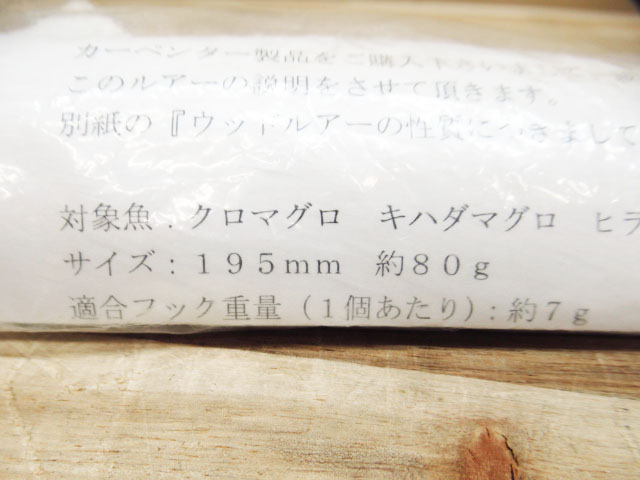 カーペンター製品をご購入下さいまして
このルアーの説明をさせて頂きます。
別紙の『ウッドルアーの性質につきまして
対象魚：クロマグロ　キハダマグロ　ヒラ
サイズ：１９５mm　約８０g
適合フック重量（１個あたり）：約７g